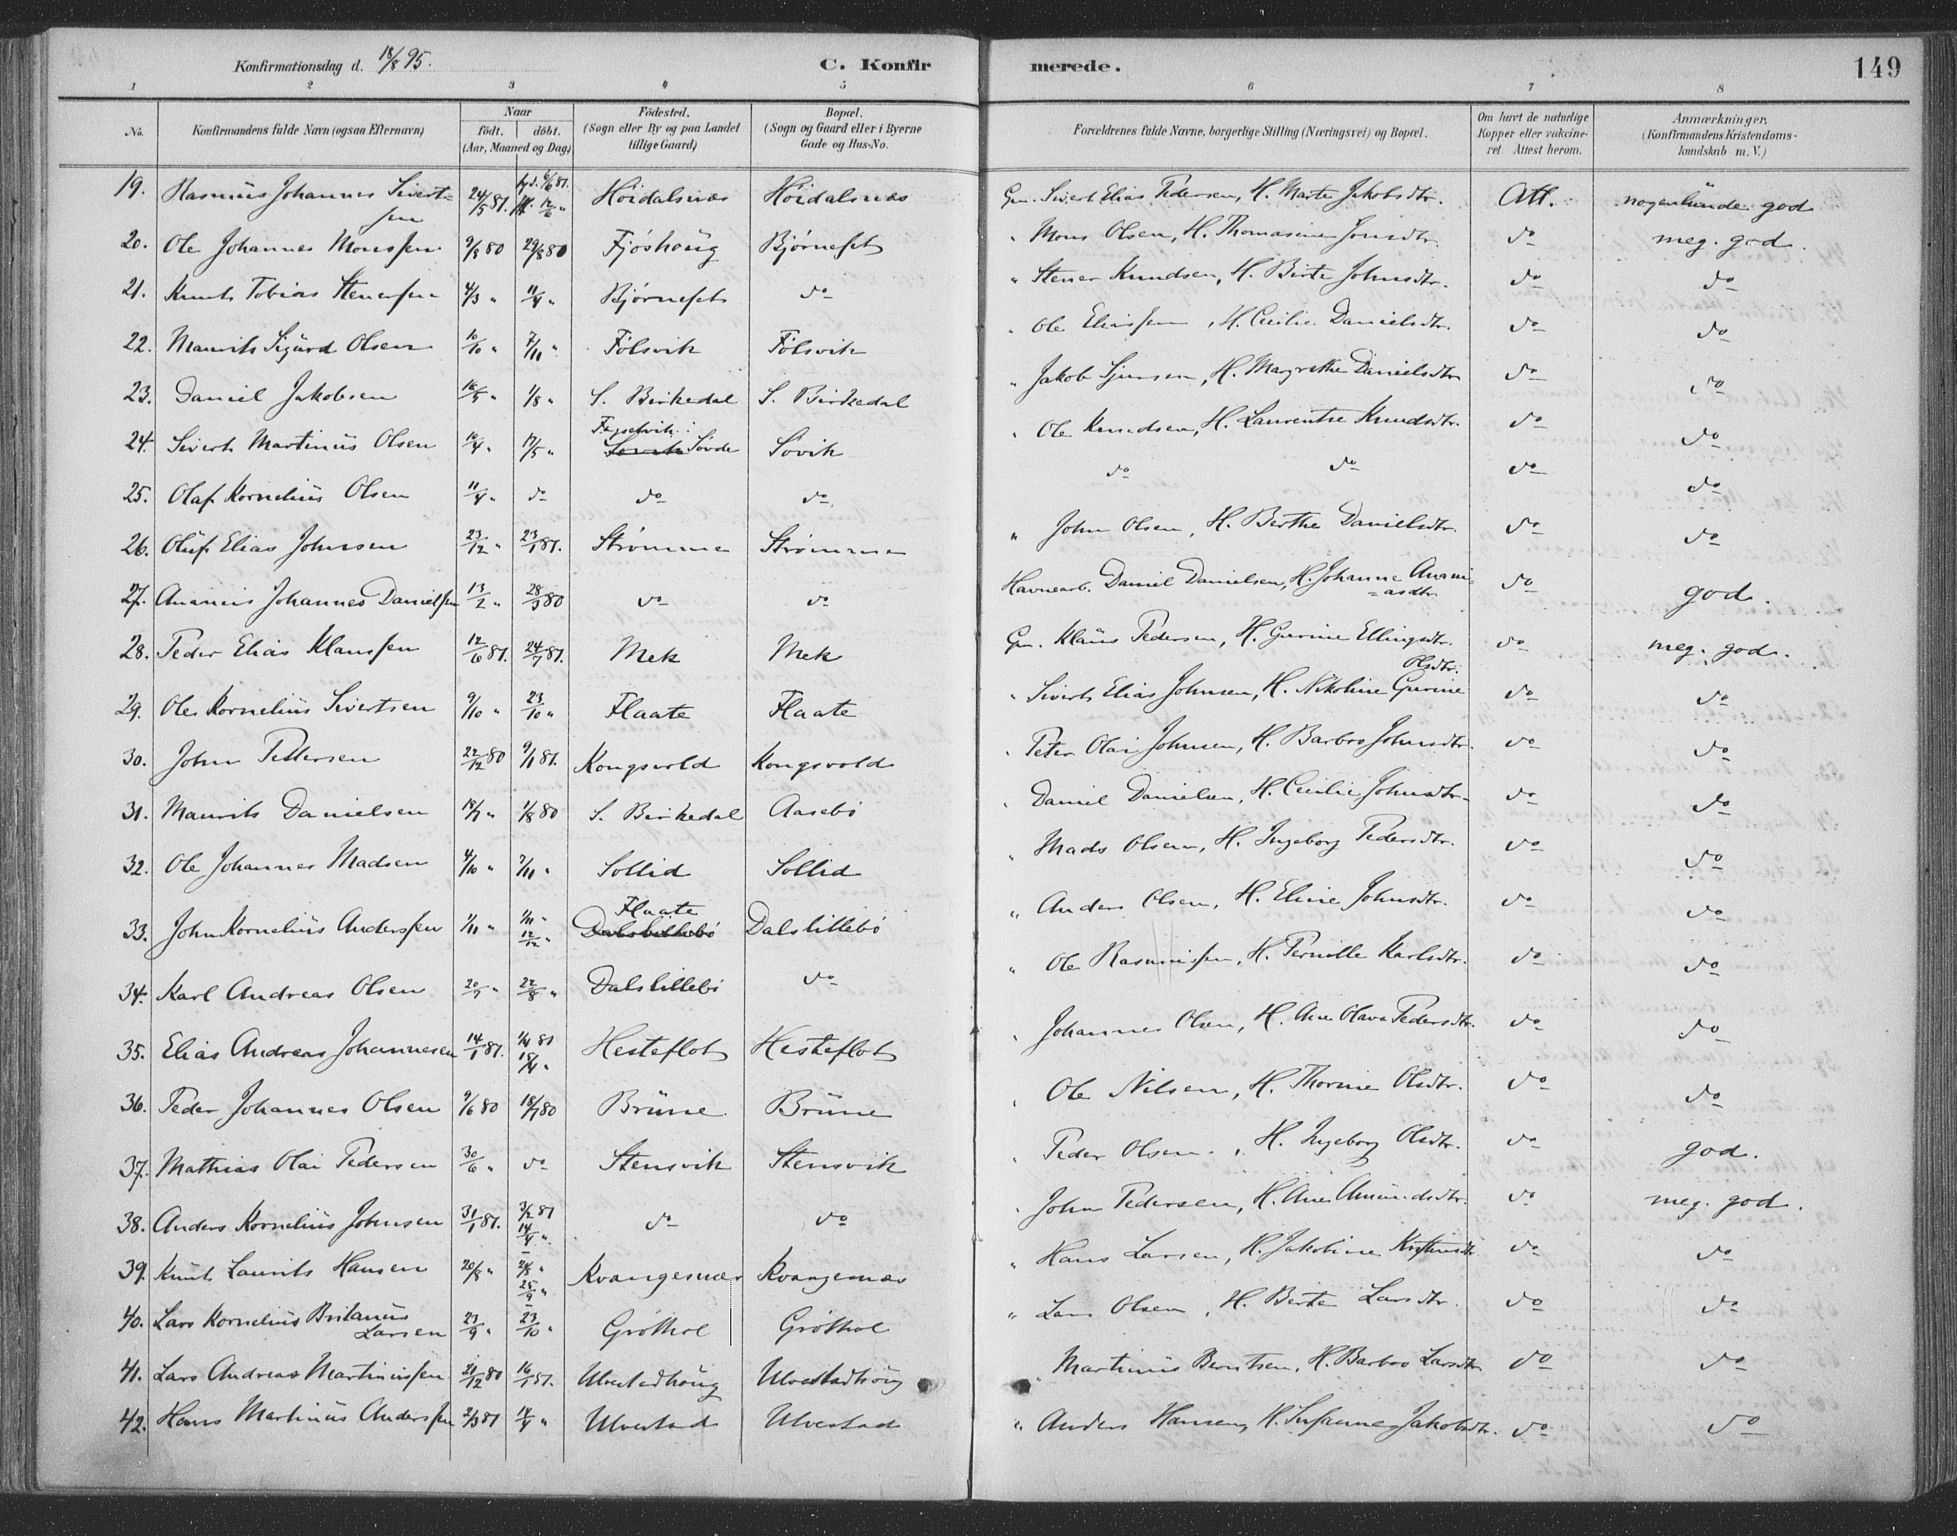 Konfirmationsdag d. 18/8 95.
C. Konfirmerede.
149
1 2 3 4 5 6 7 8
No.
Konfirmandens fulde Navn (ogsaa Efternavn)
Naar
født. døbt.
(Aar, Maaned og Dag)
Fødested.
(Sogn eller By og paa Landet tillige Gaard)
Bopæl.
(Sogn og Gaard eller i Byerne Gade og Hus-No.
Forældrenes fulde Navne, borgerlige Stilling (Næringsvei) og Bopæl.
Om havt de naturlige Kopper eller vakcineret. Attest herom.
Anmærkninger.
(Konfirmandens Kristendomskundskab m. V.)
19. Rasmus Johannes Sivertsen 24/5 81. hjd. 6/6 81. 12/6 " Höidalsnæs Höidalsnæs Gm. Sivert Elias Pedersen, H. Marte Jakobsdtr. Att. nogenlunde god
20. Ole Johannes Monssen 9/8 80 29/8 80 Fjöshoug Bjørneset " Mons Olsen, H. Thomasine Jonsdtr. do meg. god.
21. Knut Tobias Stenersen 4/3 " 11/4 " Bjørneset do " Stener Knudsen, H. Birte Johnsdtr. do do
22. Maurits Sigurd Olsen 10/10 " 7/11 " Fölsvik Fölsvik " Ole Eliassen, H. Cecilie Danielsdtr. do do
23. Daniel Jakobsen 16/5 " 1/8 " S. Birkedal S. Birkedal " Jakob Sjursen, H. Margrethe Danielsdtr do do
24. Sivert Martinus Olsen 10/4 " 17/5 " Sövde Sövik " Ole Knudsen, H. Laurentse Knudsdtr. do do
25. Olaf Kornelius Olsen 11/4 " do do do. do do do do
26. Oluf Elias Johnsen 23/12 " 23/1 81. Strömmen Strömmen " John Olsen, H. Berthe Danielsdtr. do do
27. Ananias Johannes Danielsen 13/2 " 28/3 80 do do Havnearb. Daniel Danielsen, H. Johanne Ananiasdtr. do god.
28. Peder Elias Klaussen 12/6 81. 24/7 81. Mek Mek Gm. Klaus Pedersen, H. Gurine Ellingsdtr. do meg. god.
29. Ole Kornelius Sivertsen 9/10 " 23/10 " Flaate Flaate " Sivert Elias Johnsen, H. Nikoline Gurine Olsdtr. do do
30. John Pettersen 22/12 80 9/1 81. Kongsvold Kongsvold " Peter Olai Johnsen, H. Barbro Johnsdtr. do do
31. Maurits Danielsen 18/7 " 1/8 80 S. Birkedal Aasebö " Daniel Danielsen, H. Cecilie Johnsdtr. do do
32. Ole Johannes Madsen 4/10 " 7/11 " Sollid Sollid " Mads Olsen, H. Ingeborg Pedersdtr. do do
33. John Kornelius Anderssen 1/11 " 1/11 " 12/12 " Flaate Dalslillebö Dalslillebö " Anders Olsen, H. Eline Johnsdtr. do do
34. Karl Andreas Olsen 20/7 " 22/8 " Dalslillebö do " Ole Rasmussen, H. Pernille Karlsdtr. do do
35. Elias Andreas Johannesen 14/1 81. 18/4 " Hesteflot Hesteflot " Johannes Olsen, H. Ane Olava Pedersdtr. do do
36. Peder Johannes Olsen 9/6 80 18/7 80 Brune Brune " Ole Nilsen, H. Thorine Olsdtr. do do
37. Mathias Olai Pedersen 30/6 " do Stensvik Stensvik " Peder Olsen, H. Ingeborg Olsdtr. do god.
38. Anders Kornelius Johnsen 31/1 81. 3/2 81 14/4 " do do " John Pedersen, H. Ane Amundsdtr. do meg. god.
39. Knut Laurits Hansen 20/8 " 21/8 " 25/9 " Kvangesnæs Kvangesnæs " Hans Larsen, H. Jakobine do do
40. Lars Kornelius Britanius Larsen 23/9 " 23/10 " Gröthol Gröthol " Lars Olsen, H. Berte Larsdtr. do do
41. Lars Andreas Martinussen 21/12 80 16/1 81. Ulvestadhoug Ulvestadhoug " Martinus Berntsen, H. Barbro Larsdtr do do
42. Hans Martinus Anderssen 2/3 81 14/4 " Ulvestad Ulvestad " Anders Hansen, H. Susanne Jakobsdtr. do do